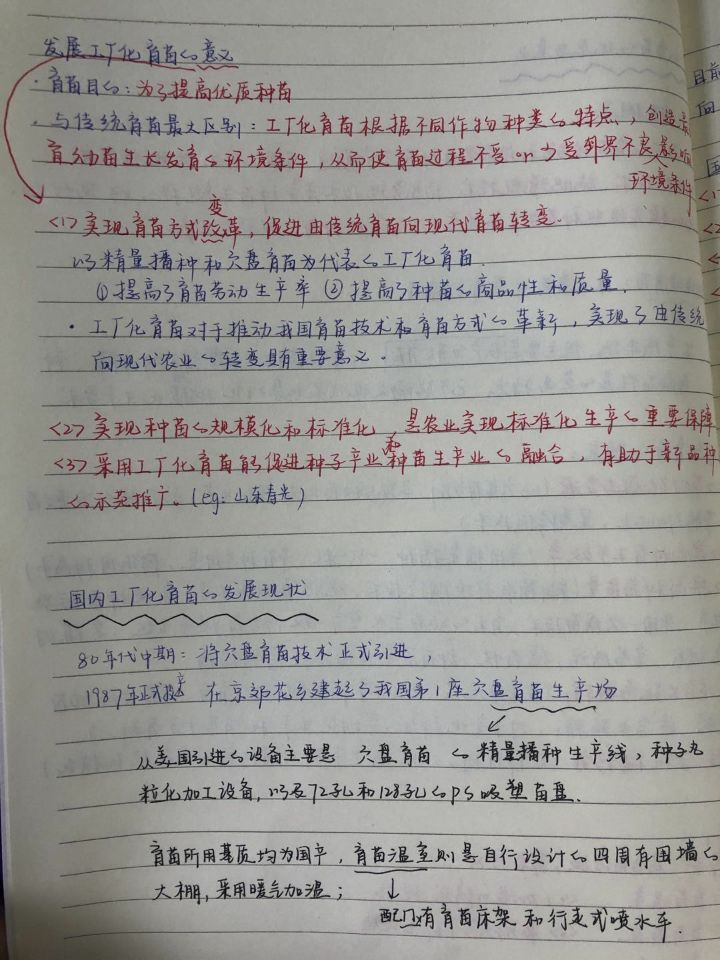 发展工厂化育苗的意义
·育苗目的：为了提高优质种苗
·与传统育苗最大区别：工厂化育苗根据不同作物种类的特点，创造最
育幼苗生长发育的环境条件，从而使育苗过程不受or少受外界不良影响
环境条件
变
<1>实现育苗方式改革，促进由传统育苗向现代育苗转变.
以精量播种和穴盘育苗为代表的工厂化育苗.
①提高了育苗劳动生产率 ②提高了种苗的商品性和质量.
·工厂化育苗对于推动我国育苗技术和育苗方式的革新，实现了由传统
向现代农业的转变具有重要意义.
<2>实现种苗的规模化和标准化，是农业实现标准化生产的重要保障
<3>采用工厂化育苗能促进种子产业和种苗生产业的融合，有助于新品种
的示范推广。(eg：山东寿光)
国内工厂化育苗的发展现状
80年代中期：将穴盘育苗技术正式引进，
1987年正式投产 在京郊花乡建起了我国第1座穴盘育苗生产场
从美国引进的设备主要是 穴盘育苗 的精量播种生产线，种子丸
粒化加工设备，以及72孔和128孔的PS吸塑苗盘.
育苗所用基质均为国产，育苗温室则是自行设计的四周有围墙的
大棚，采用暖气加温；
配有育苗床架和行走式喷水车.